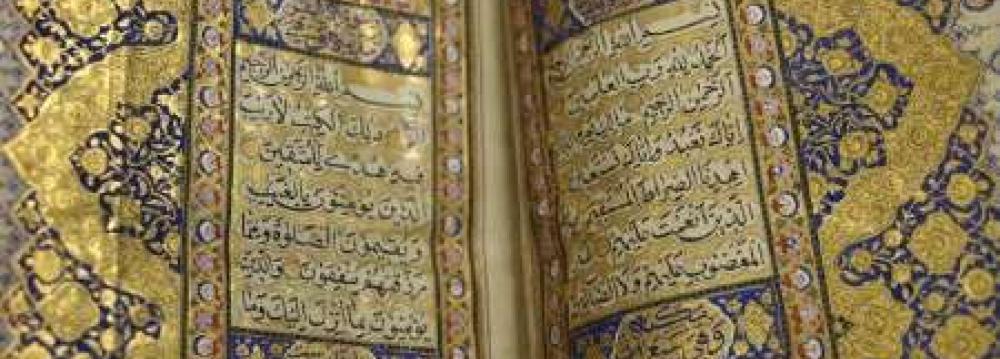 بسم الله الرحمن
الحمد لله رب العالمين
الرحمن الرحيم
اياك نعبد واياك نستعين
اهدنا الصراط المستقيم
الذين انعمت عليهم
المغضوب عليهم ولا الضالين
وهي سبع
بسم الله الرحمن الرحيم
ذلك الكتب لا ريب
فيه هدى للمتقين
الذين يومنون بالغيب
و يقيمون الصلوة ومما
رزقنهم ينفقون والذين
يومنون بما انزل اليك وما